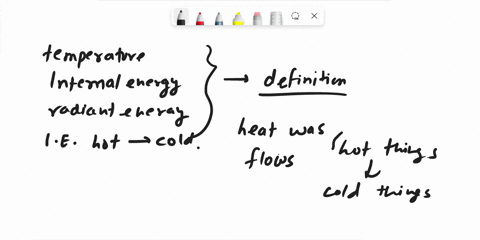 temperature
Internal energy
radiant eneray
I.E. hot → cold.
→ definition
heat was
flows
hot things
↓
cold things